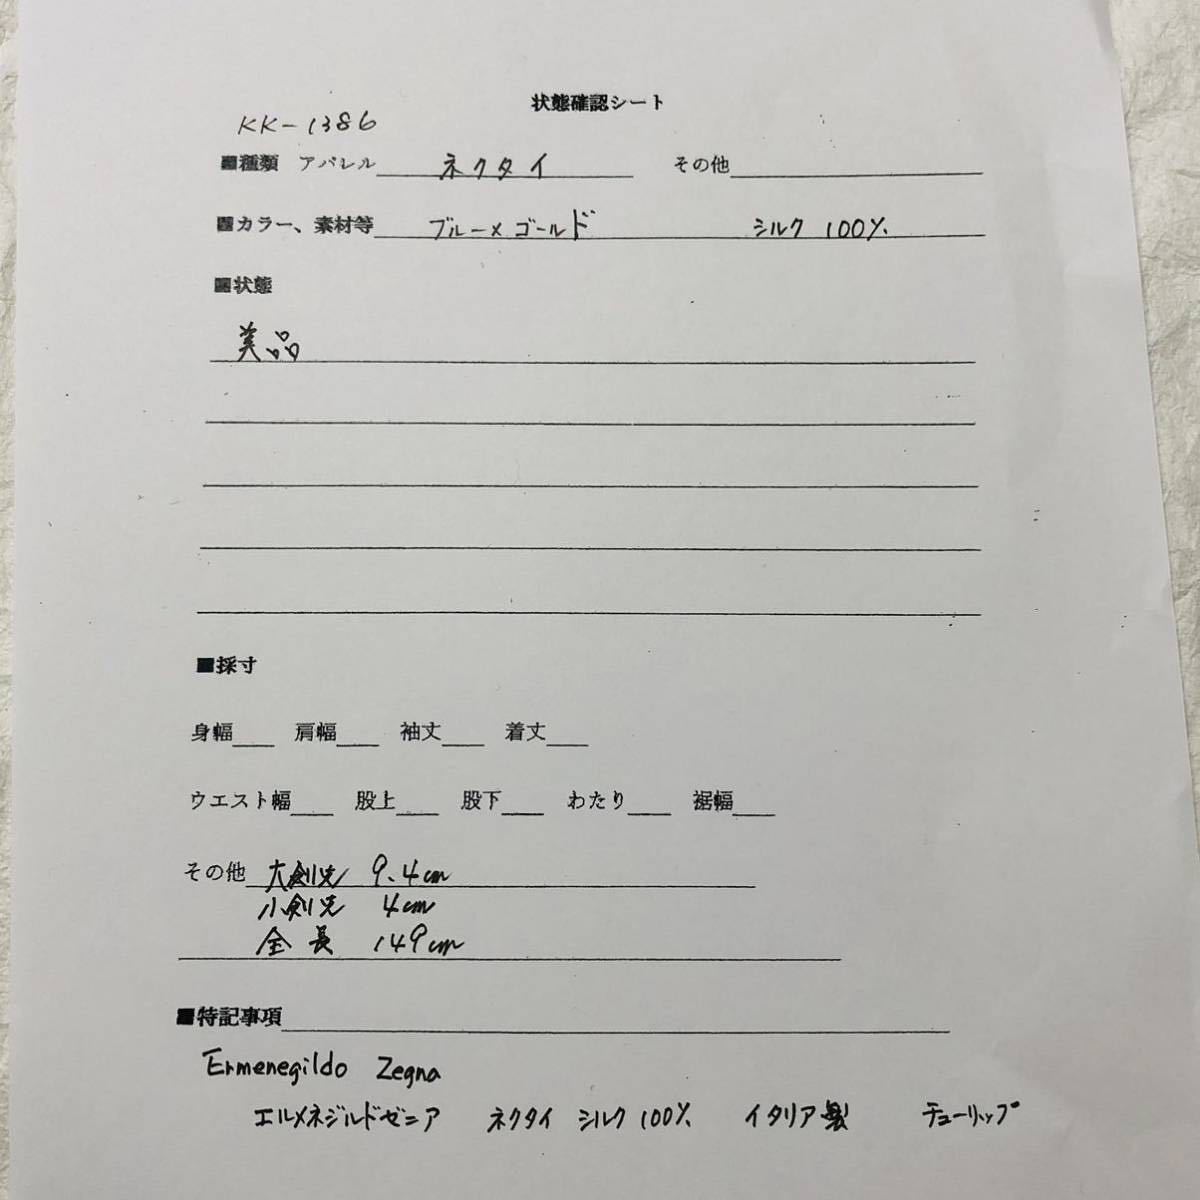 状態確認シート
KK-1386
■種類 アパレル ネクタイ その他
■カラー、素材等 ブルー×ゴールド シルク 100%
■状態
美品
■採寸
身幅 肩幅 袖丈 着丈
ウエスト幅 股上 股下 わたり 裾幅
その他 大剣先 9.4cm
小剣先 4cm
全長 149cm
■特記事項
Ermenegildo Zegna
エルメネジルドゼニア ネクタイ シルク 100% イタリア製 チューリップ